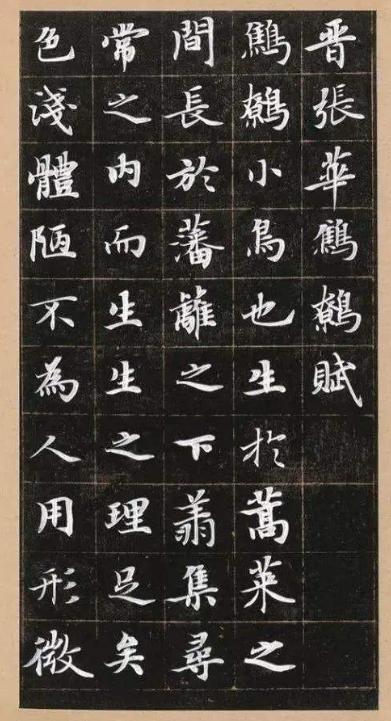 晋張華鷦鷯賦
鷦鷯小鳥也生於蒿萊之
間長於藩籬之下翔集尋
常之内而生生之理足矣
色淺體陋不為人用形微